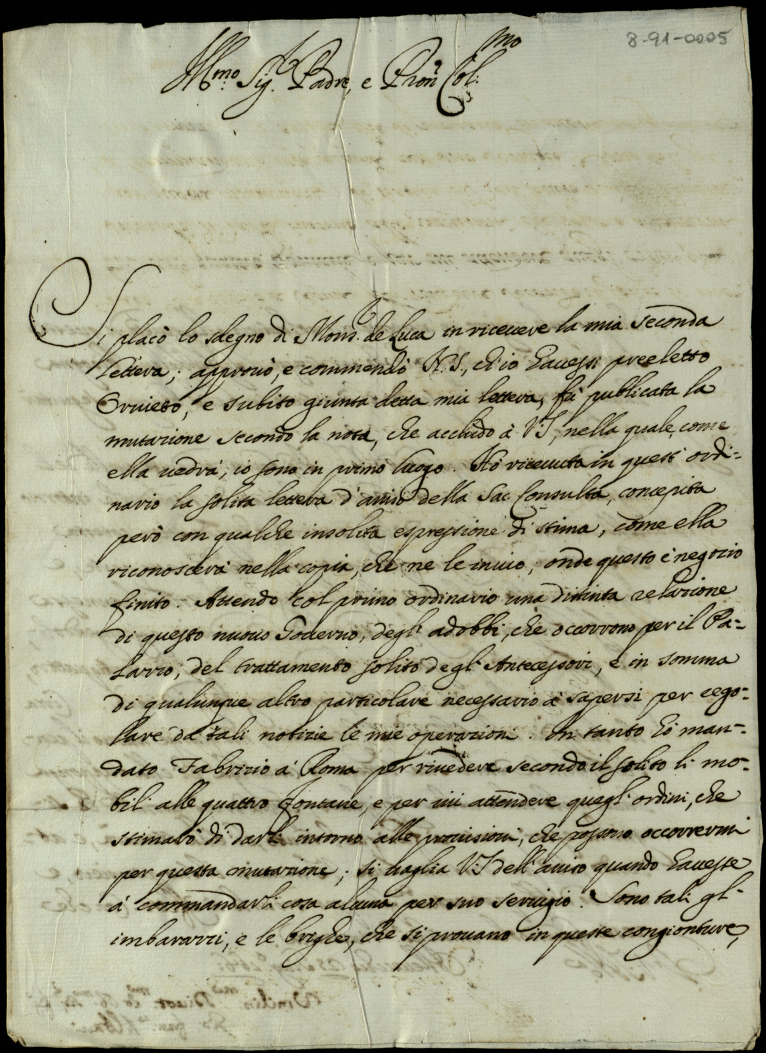 8-91-0005
Ill.mo Sig.r Padre, e Pron Col.mo
Si placò lo sdegno di Mons.r de Luca in ricevere la mia seconda
lettera; approvò, e commendò N.S., ch'io havessi preeletto
Orvieto, e subito giunta detta mia lettera, fù publicata la
mutazione secondo la nota, che accludo à V.S., nella quale, come
ella vedrà, io sono in primo luogo. Hò ricevuta in quest'ordi=
nario la solita lettera d'aviso della Sac. Consulta, concepita
però con qualche insolita espressione di stima, come ella
riconoscerà nella copia, che ne le invio; onde questo è negozio
finito. Attendo col primo ordinario una distinta relazione
di questo nuovo Governo, degl'adobbi, che occorrono per il Pa=
lazzo, del trattamento solito degl'Antecessori, e in somma
di qualunque altro particolare necessario à sapersi per rego=
lare da tali notizie le mie operazioni. In tanto hò man=
dato Fabrizio à Roma per rivedere secondo il solito li mo=
bili alle quattro fontane, e per ivi attendere quegl'ordini, che
stimarò di darli intorno alle provisioni, che possono occorrermi
per questa mutazione; si vaglia V.S. dell'aviso quando havesse
à commandarli cosa alcuna per suo servigio. Sono tali gl'
imbarazzi, e le brighe, che si provano in queste congionture,